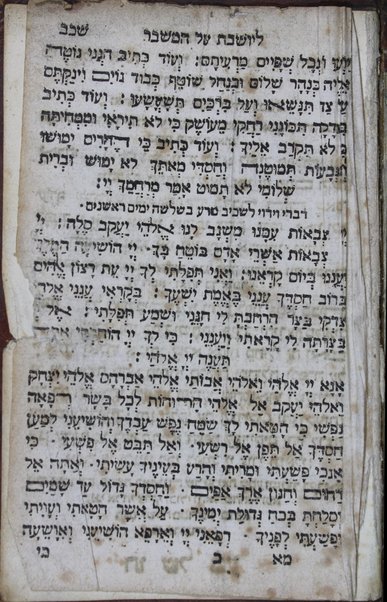 ליושבת על המשבר שכב
וְנָכָל שְׁפָיִים מַרְעִיתָם׃ וְעוֹד כְּתִיב הִנְנִי נוֹטֶה
אֵלֶיהָ כְּנָהָר שָׁלוֹם וּכְנַחַל שׁוֹטֵף כְּבוֹד גּוֹיִם וִינַקְתֶּם
עַל צַד תִּנָּשֵׂאוּ וְעַל בִּרְכַּיִם תְּשָׁעֳשָׁעוּ׃ וְעוֹד כְּתִיב
בִּצְדָקָה תִּכּוֹנָנִי רַחֲקִי מֵעוֹשֶׁק כִּי לֹא תִירָאִי וּמִמְּחִתָּה
כִּי לֹא תִקְרַב אֵלָיִךְ׃ וְעוֹד כְּתִיב כִּי הֶהָרִים יָמוּשׁוּ
וְהַגְּבָעוֹת תְּמוּטֶנָה וְחַסְדִּי מֵאִתֵּךְ לֹא יָמוּשׁ וּבְרִית
שְׁלוֹמִי לֹא תָמוּט אָמַר מְרַחֲמֵךְ יְיָ׃
דברי וידוי לשכיב מרע בשלשה ימים ראשונים ׃
יְיָ צְבָאוֹת עִמָּנוּ מִשְׂגָּב לָנוּ אֱלֹהֵי יַעֲקֹב סֶלָה׃ יְיָ
צְבָאוֹת אַשְׁרֵי אָדָם בּוֹטֵחַ בָּךְ׃ יְיָ הוֹשִׁיעָה הַמֶּלֶךְ
יַעֲנֵנוּ בְיוֹם קָרְאֵנוּ׃ וַאֲנִי תְפִלָּתִי לְךָ יְיָ עֵת רָצוֹן אֱלֹהִים
בְּרוֹב חַסְדֶּךָ עֲנֵנִי בֶּאֱמֶת יִשְׁעֶךָ׃ בְּקָרְאִי עֲנֵנִי אֱלֹהֵי
צִדְקִי בַּצָּר הִרְחַבְתָּ לִּי חָנֵּנִי וּשְׁמַע תְּפִלָּתִי׃ אֶל יְיָ
בַּצָּרָתָה לִּי קָרָאתִי וַיַּעֲנֵנִי׃ כִּי לְךָ יְיָ הוֹחָלְתִּי אַתָּה
תַעֲנֶה יְיָ אֱלֹהָי׃
אָנָא יְיָ אֱלֹהַי וֵאלֹהֵי אֲבוֹתַי אֱלֹהֵי אַבְרָהָם אֱלֹהֵי יִצְחָק
וֵאלֹהֵי יַעֲקֹב אֵל אֱלֹהֵי הָרוּחוֹת לְכָל בָּשָׂר רְפָאָה
נַפְשִׁי כִּי חָטָאתִי לָךְ שַׂמַּח נֶפֶשׁ עַבְדֶּךָ וְהוֹשִׁיעֵנִי לְמַעַן
חַסְדֶּךָ אַל תֵּפֶן אֶל רִשְׁעִי׃ וְאַל תַּבֵּט אֶל פִּשְׁעִי׃ כִּי
אָנֹכִי פָּשַׁעְתִּי וּמָרִיתִי וְהָרַע בְּעֵינֶיךָ עָשִׂיתִי׃ וְאַתָּה אֵל
רַחוּם וְחַנּוּן אֶרֶךְ אַפַּיִם׃ וְחַסְדְּךָ גָּדוֹל עַד שָׁמַיִם
וְסָלַחְתָּ בְּכֹחַ גְּדוּלַת יְמִינֶךָ עַל אֲשֶׁר חָטָאתִי וְעָוִיתִי
וּפָשַׁעְתִּי לְפָנֶיךָ׃ רְפָאֵנִי יְיָ וְאֵרָפֵא הוֹשִׁיעֵנִי וְאִוָּשֵׁעָה
מא ב כי